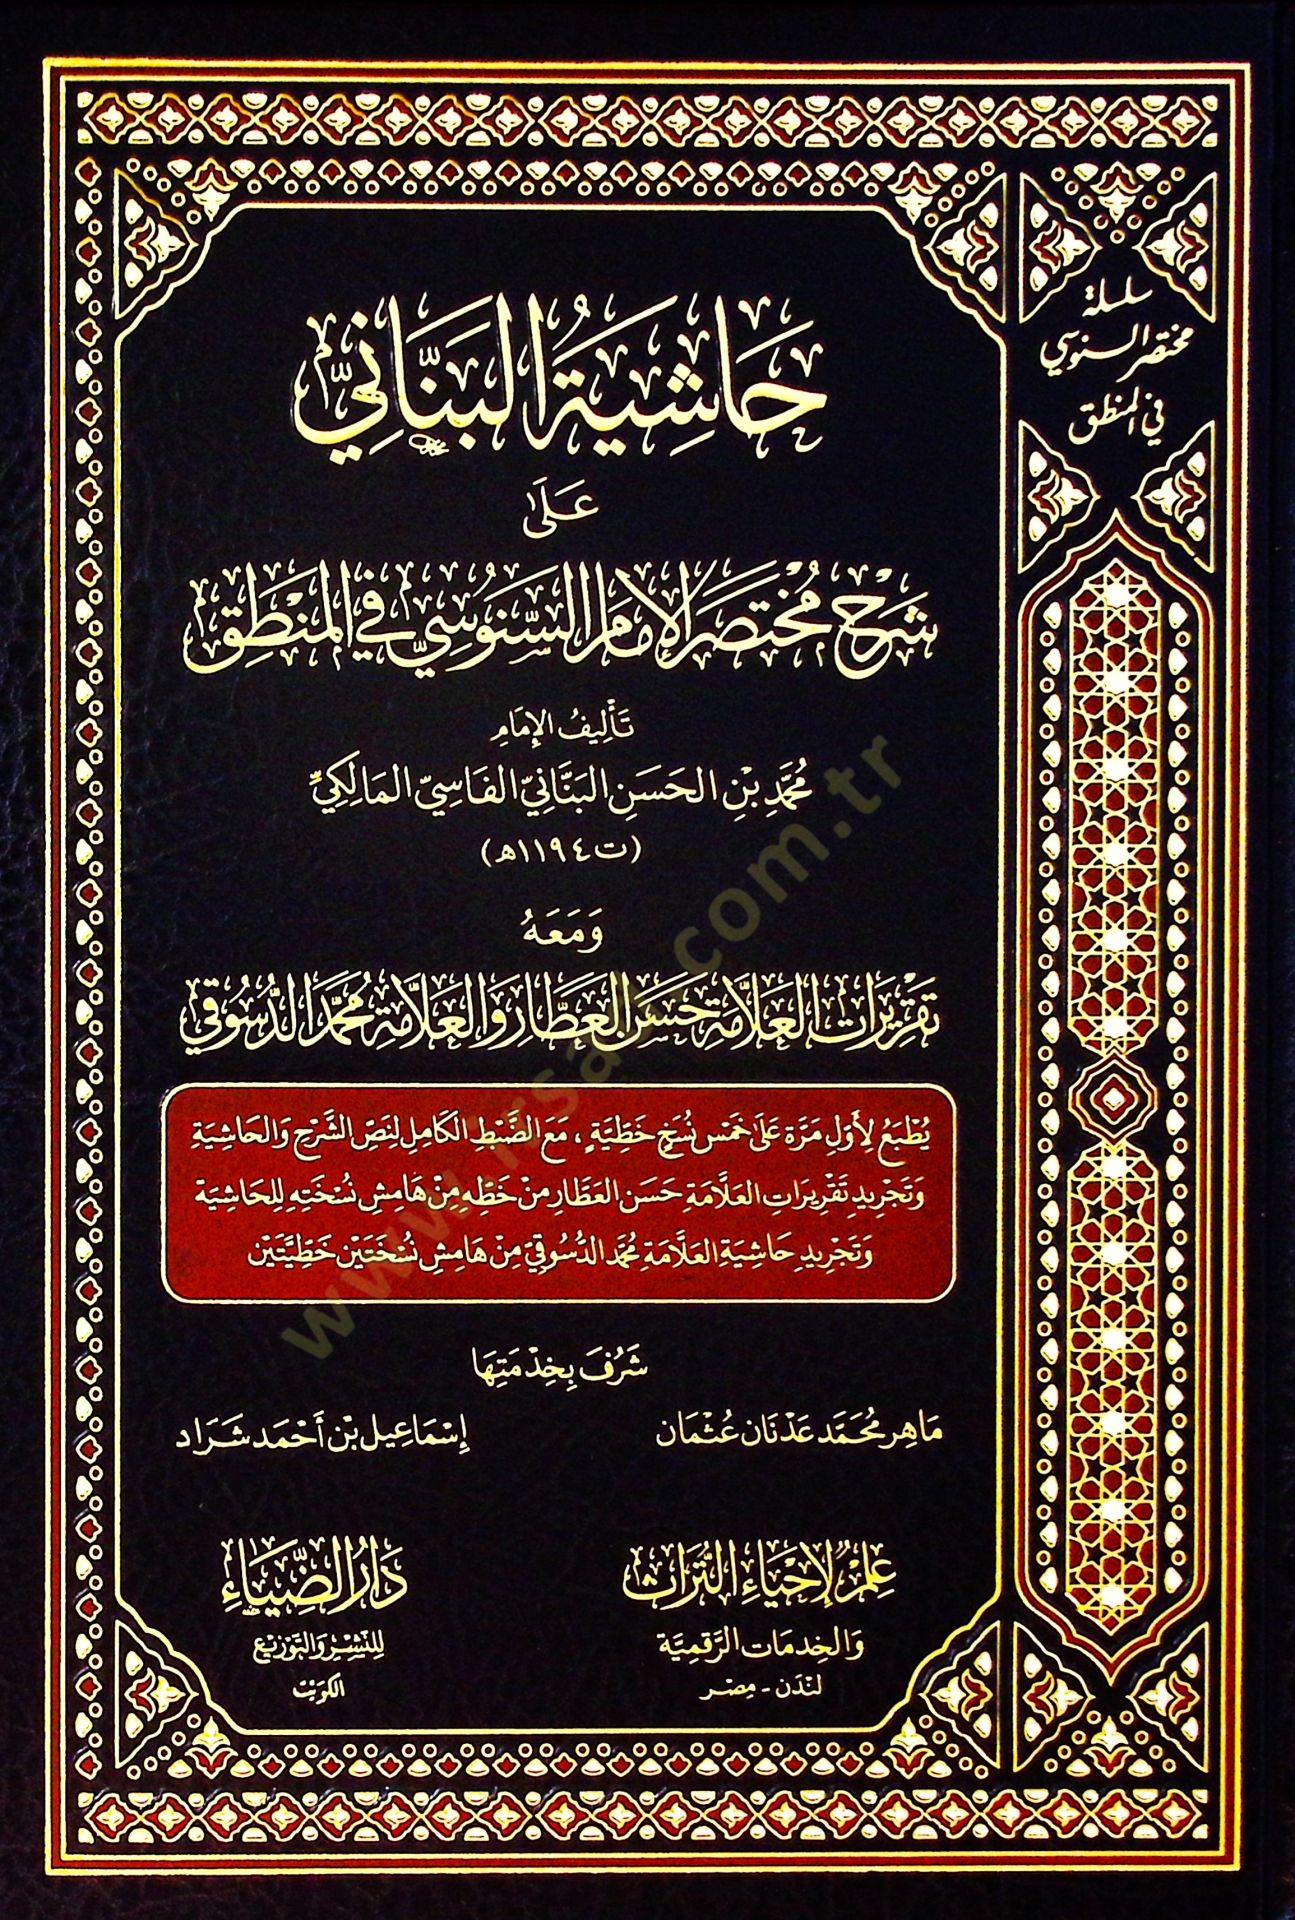 سلسلة
مختصر السنوسي
في المنطق
حَاشِيَةُ البَنَّانِيِّ
عَلَى
شَرْحِ مُخْتَصَرِ الإِمَامِ السَّنُوسِيِّ فِي المَنْطِقِ
تَأْلِيفُ الإِمَامِ
مُحَمَّدِ بْنِ الحَسَنِ البَنَّانِيِّ الفَاسِيِّ المَالِكِيِّ
(ت ١١٩٤هـ)
وَمَعَهُ
تَقْرِيرَاتُ العَلَّامَةِ حَسَنِ العَطَّارِ وَالعَلَّامَةِ مُحَمَّدٍ الدُّسُوقِيِّ
يُطْبَعُ لِأَوَّلِ مَرَّةٍ عَلَى خَمْسِ نُسَخٍ خَطِّيَّةٍ، مَعَ الضَّبْطِ الكَامِلِ لِنَصِّ الشَّرْحِ وَالحَاشِيَةِ
وَتَجْرِيدِ تَقْرِيرَاتِ العَلَّامَةِ حَسَنِ العَطَّارِ مِنْ خَطِّهِ مِنْ هَامِشِ نُسْخَتِهِ لِلحَاشِيَةِ
وَتَجْرِيدِ حَاشِيَةِ العَلَّامَةِ مُحَمَّد الدُّسُوقِيِّ مِنْ هَامِشِ نُسْخَتَيْنِ خَطِّيَّتَيْنِ
شَرُفَ بِخِدْمَتِهَا
مَاهِر مُحَمَّد عَدْنَان عُثْمَان
إِسْمَاعِيل بْن أَحْمَد شَرَاد
عِلْمٌ لِإِحْيَاءِ التُّرَاثِ
وَالخِدمَات الرَّقمِيَّة
لَنْدَن - مِصْر
دَارُ الضِّيَاءِ
لِلنَّشْرِ وَالتَّوْزِيع
الكويت
www.irsad.com.tr